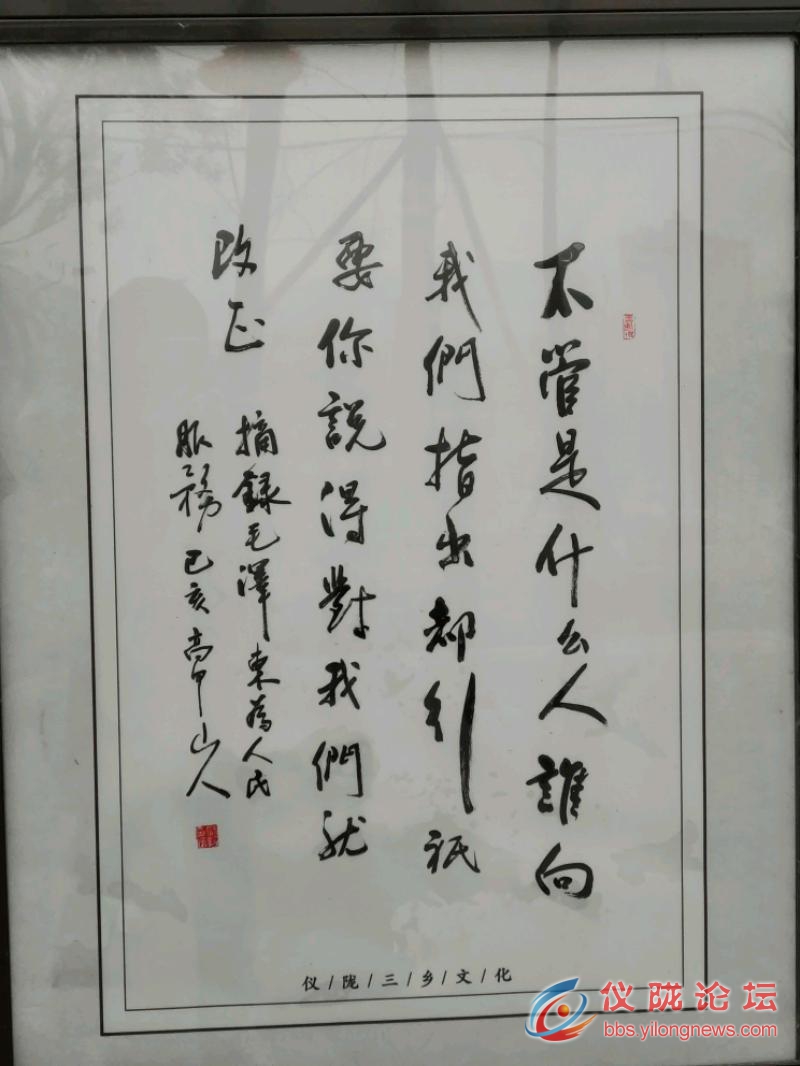 不管是什么人誰向
我們指出都行祇
要你説得對我們就
改正
摘録毛澤東為人民
服務 己亥 高甲山人
仪/陇/三/乡/文/化
仪陇论坛
bbs.yilongnews.com